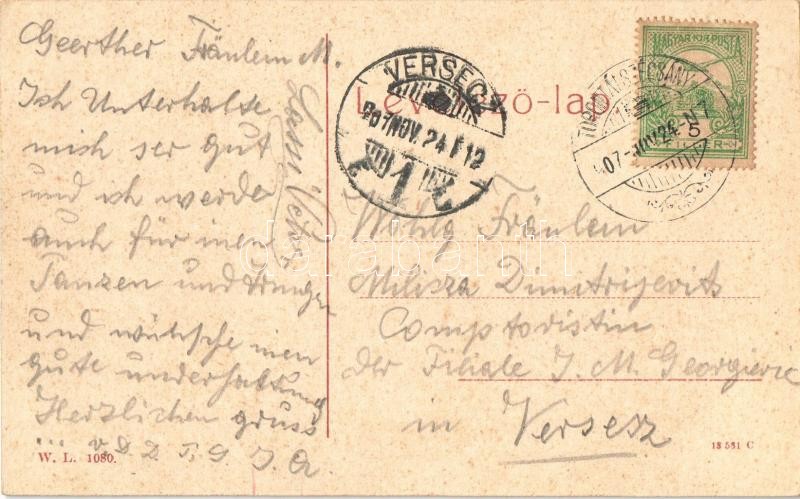 Geerther Fräulein M.
Ich Unterhalte
mich ser gut
und ich werde
auch für inen
Tanzen und
und wünsche inen
gute underhaltung
Herzlichen gruss
... v. D. Z. T. G J. A.
W. L. 1080.
VERSECZ
907 NOV. 24
1
Levelező-lap
MAGYAR KIR. POSTA
5
FILLÉR
Wohlg Fräulein
Milisza Dimitrijevits
Comptoristin
der Filiale J. M. Georgievic
in Versesz
13 531 C